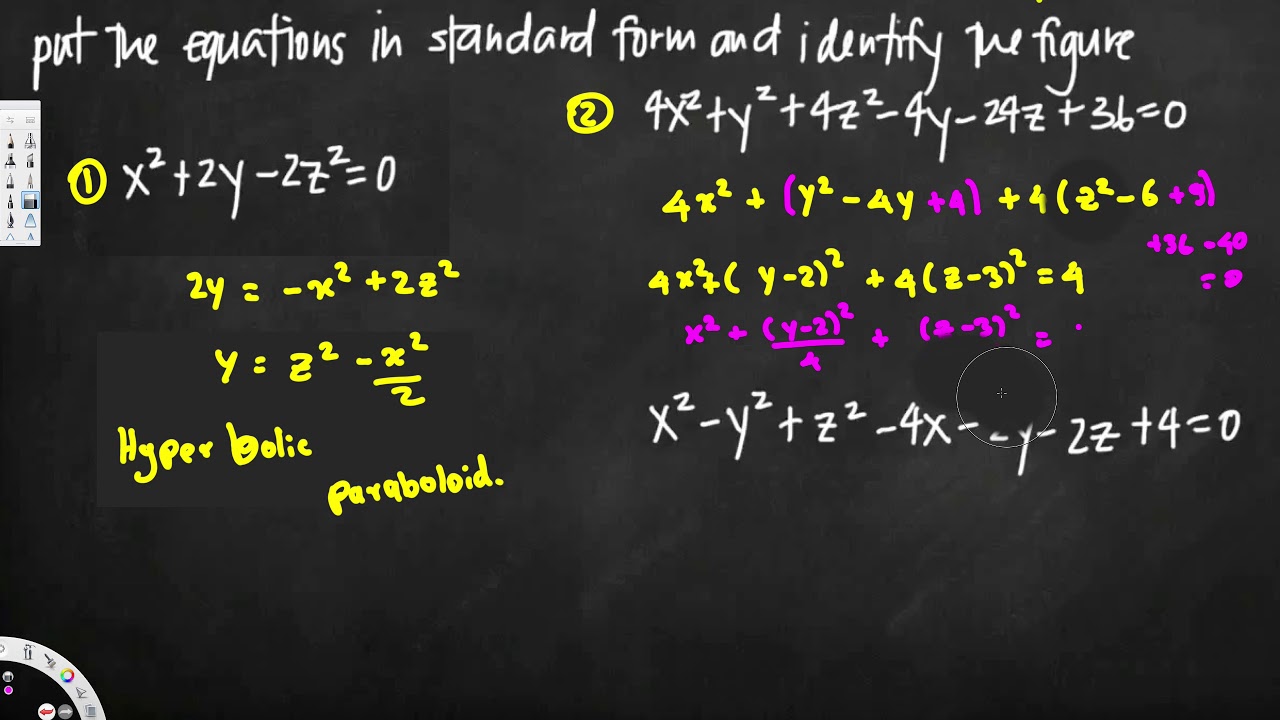 put the equations in standard form and identify the figure
① x²+2y-2z²=0
2y = -x²+2z²
y = z² - x²/2
Hyperbolic
paraboloid.
② 4x²+y²+4z²-4y-24z+36=0
4x² + (y²-4y+4) + 4(z²-6+9)
+36-40
=0
4x²+(y-2)² + 4(z-3)² = 4
x² + (y-2)²/4 + (z-3)² =
x²-y²+z²-4x- y-2z+4=0